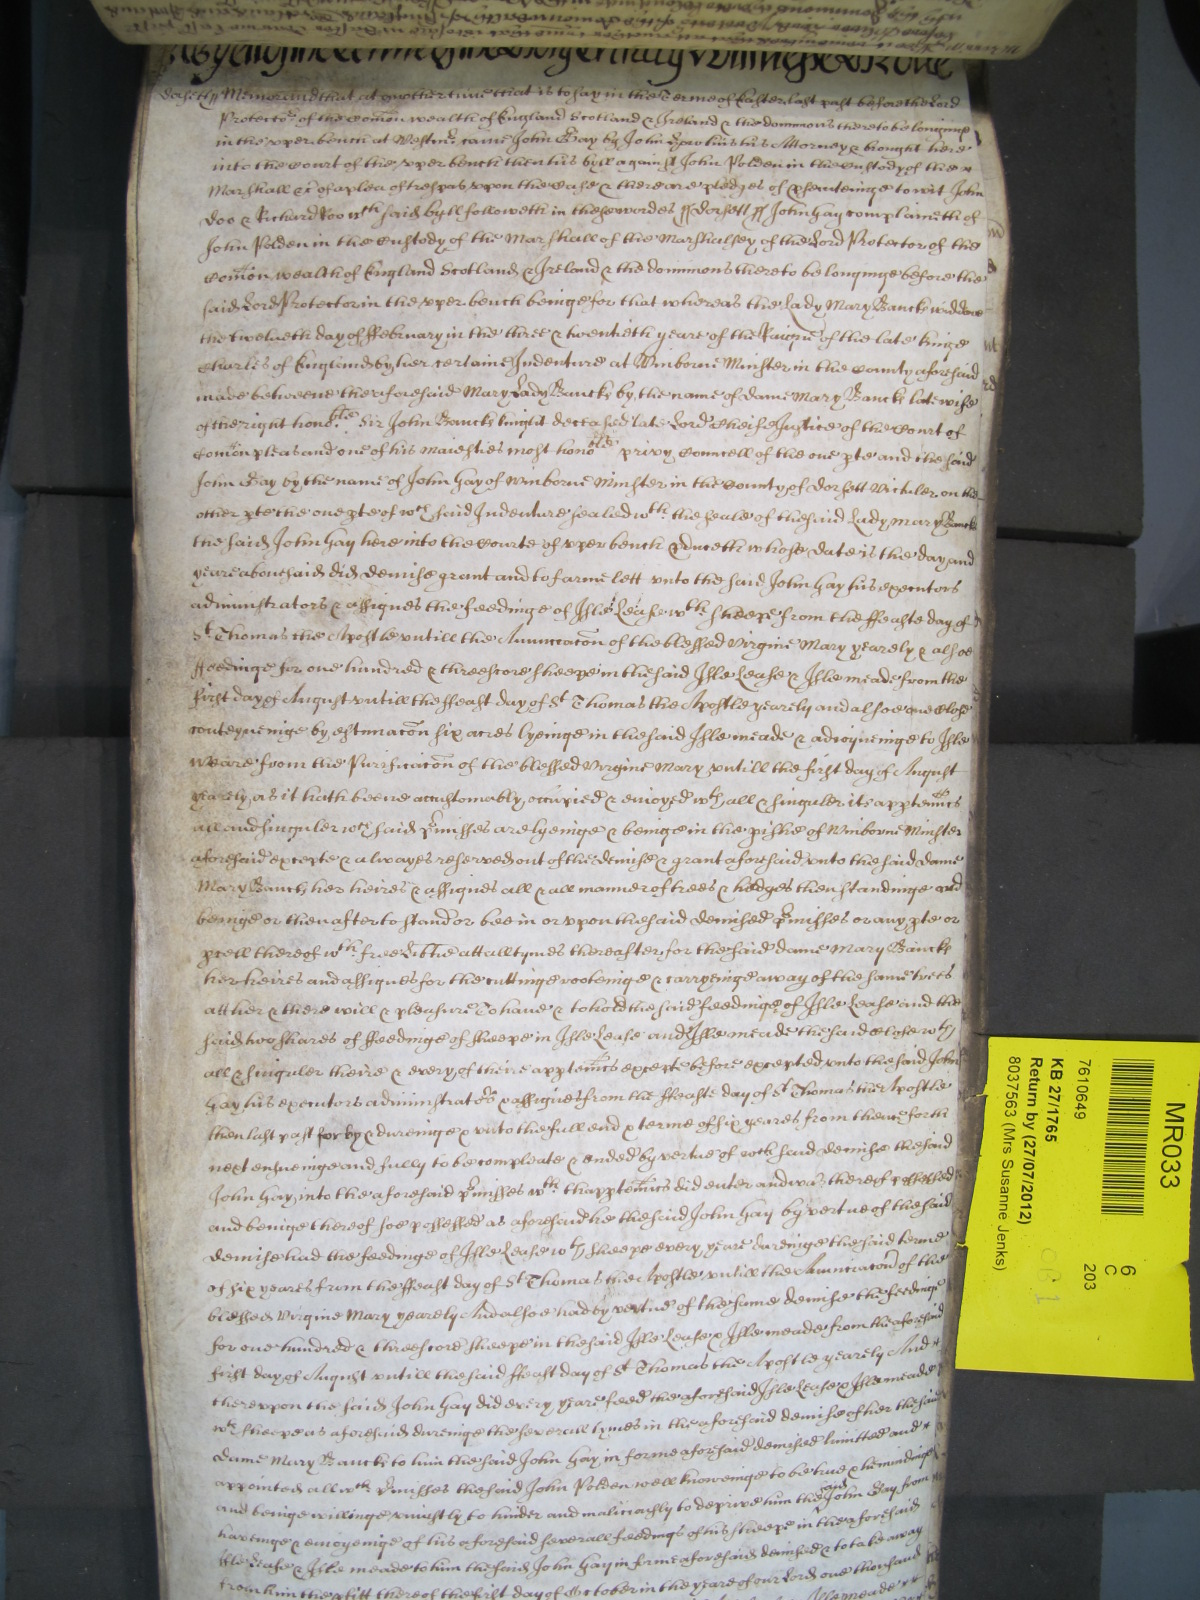 Dorsett ss Memorand that at another time that is to say in the Terme of Easter last past before the Lord
Protector of the Comon wealth of England Scotland & Ireland & the dominions thereto belonginge
in the vpper bench at Westmr came John Gay by John his Attorney & brought here
into the Court of the vpper bench then his byll against John Polden in the Custody of the
Marshall &c of a plea of trespas vpon the Case & there are pledges of prosecuteinge to wit John
Doo & Richard Roo wch said byll followeth in these wordes ss Dorsett ss John Gay complaineth of
John Polden in the Custody of the Marshall of the Marshalsey of the Lord Protector of the
Comon wealth of England Scotland & Ireland & the dominions thereto belonginge before the
said Lord Protector in the vpper bench beinge for that whereas the Lady Mary Bancks widdow
the twelveth day of ffebruary in the three & twentieth yeare of the Raigne of the late Kinge
Charles of England by her certaine Indenture at Winborne Minster in the County aforesaid
made betweene the aforesaid Mary Lady Bancks by the name of dame Mary Bancks late wife
of the right honoble Sir John Bancks knight deceased late Lord Cheife Justice of the Court of
Comon pleas and one of his Maiesties most honoble privy Councell of the one pte and the said
John Gay by the name of John Gay of Winborne Minster in the County of Dorsett Victuler on the
other pte the one pte of wch said Indenture sealed wth the seale of the said Lady Mary Bancks
the said John Gay here into the Courte of vpper bench pduceth whose date is the day and
yeare abouesaid did demise grant and to farme lett vnto the said John Gay his executors
administrators & assignes the feedinge of Isle Lease wth sheepe from the ffeaste day of
St Thomas the Apostle vntill the Annunciacon of the blessed Virgine Mary yearely & alsoe
ffeedinge for one hundred & threescore sheepe in the said Isle Lease & Isle meade from the
first day of August vntill the ffeast day of St Thomas the Apostle yearely and alsoe one Close
conteyneinge by estimacon six acres lyeinge in the said Isle meade & adioyneinge to Isle
Weare from the Purificacon of the blessed Virgine Mary vntill the first day of August
yearely as it hath beene accustomably occupied & enioyed wth all & singuler its apptenncs
all and singuler wch said pmisses are lyeinge & beinge in the pishe of Winborne Minster
aforesaid excepte & alwayes reserved out of the demise & grant aforesaid vnto the said dame
Mary Bancks her heires & assignes all & all manner of trees & hedges then standinge and
beinge or then after to stand or bee in or vpon the said demised pmisses or any pte or
pcell thereof wth free libtie att all tymes thereafter for the said dame Mary Bancks
her heires and assignes for the cuttinge rooteinge & carryeinge away of the same trees
att her & there will & pleasure To haue & to hold the said feedinge of Isle Lease and the
said two shares of ffeedinge of sheepe in Isle Lease and Isle meade the said Close wth
all & singuler theire & every of theire apptenncs excepte before excepted vnto the said John
Gay his executors administrators & assignes from the ffeaste day of St Thomas the Apostle
then last past for by & dureinge & vnto the full end & terme of six yeares from thence forth
next ensueinge and fully to be compleate & ended by vertue of wch said demise the said
John Gay into the aforesaid pmisses wth thapptenncs did enter and was thereof possessed
and beinge thereof soe possessed as aforesaid he the said John Gay by vertue of the said
demise had the feedinge of Isle Lease wth sheepe every yeare dureinge the said terme
of six yeares from the ffeast day of St Thomas the Apostle vntill the Annunciacon of the
blessed Virgine Mary yearely And alsoe had by vertue of the same demise the feedinge
for one hundred & threescore sheepe in the said Isle Lease & Isle meade from the aforesaid
first day of August vntill the said ffeast day of St Thomas the Apostle yearely And
therevpon the said John Gay did every yeare feed the aforesaid Isle Lease & Isle meade
wth sheepe as aforesaid dureinge the severall tymes in the aforesaid demise of her the said
Dame Mary Bancks to him the said John Gay in forme aforesaid demised limitted and
appointed all wch pmisses the said John Polden well knoweinge to be true &
and beinge willinge vniustly to hinder and maliciously to deprive him the said John Gay from
haveinge & enioyeinge of his aforesaid severall feedings of his sheepe in the aforesaid
Isle Lease & Isle meade to him the said John Gay in forme aforesaid demised & to take away
from him the pfitt thereof the first day of October in the yeare of our Lord one thousand
Isle meade
MR033
6
C
203
7610649
KB 27/1765
Return by (27/07/2012)
8037563 (Mrs Susanne Jenks)